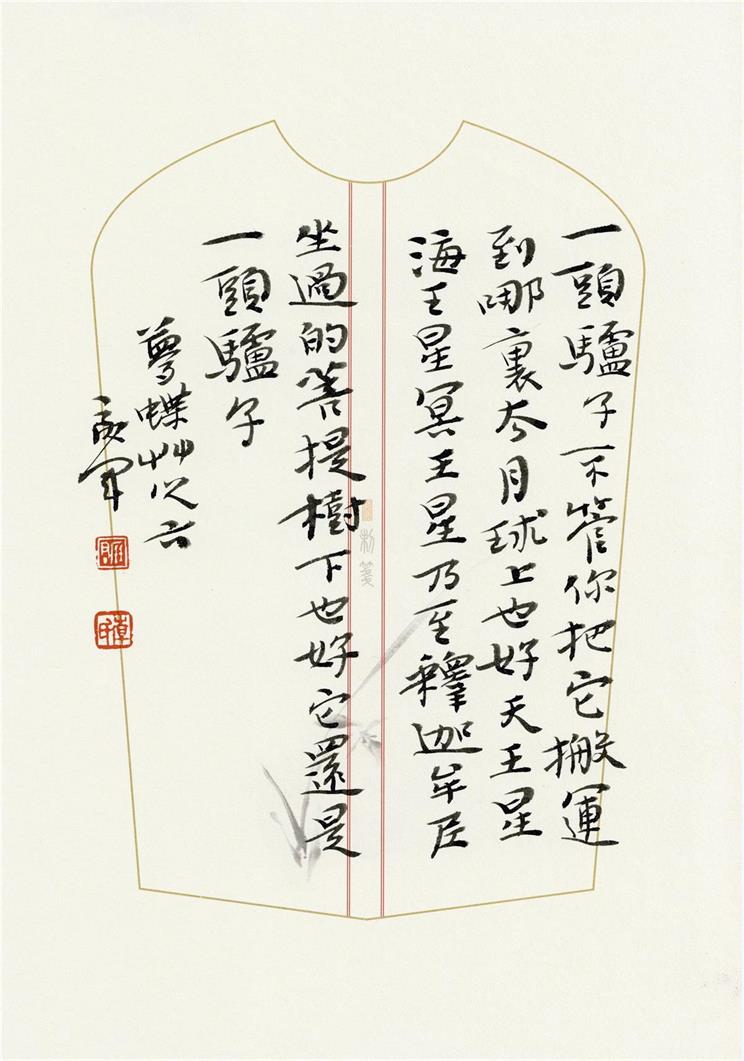 一頭驢子不管你把它搬運
到哪裏去月球上也好天王星
海王星冥王星乃至釋迦牟尼
坐過的菩提樹下也好它還是
一頭驢子
夢蝶艸
制箋